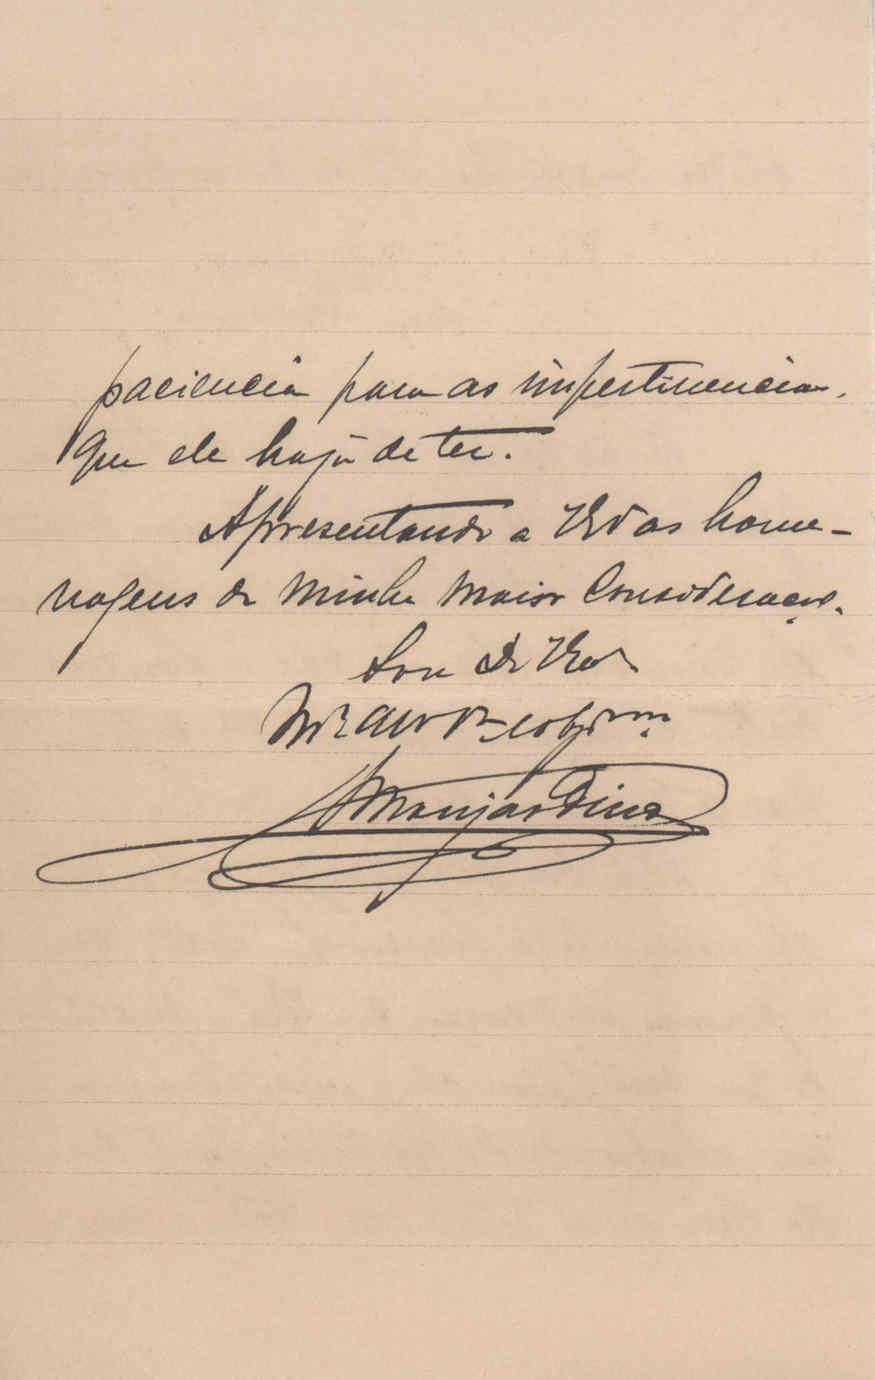 paciencia para as impertinencias
que ele haja de ter.
Apresentando a VExª as home-
nagens de minha maior Consideração.
Sou De VExª
Mtº Attº Vºr e obgdmº
Monjardino